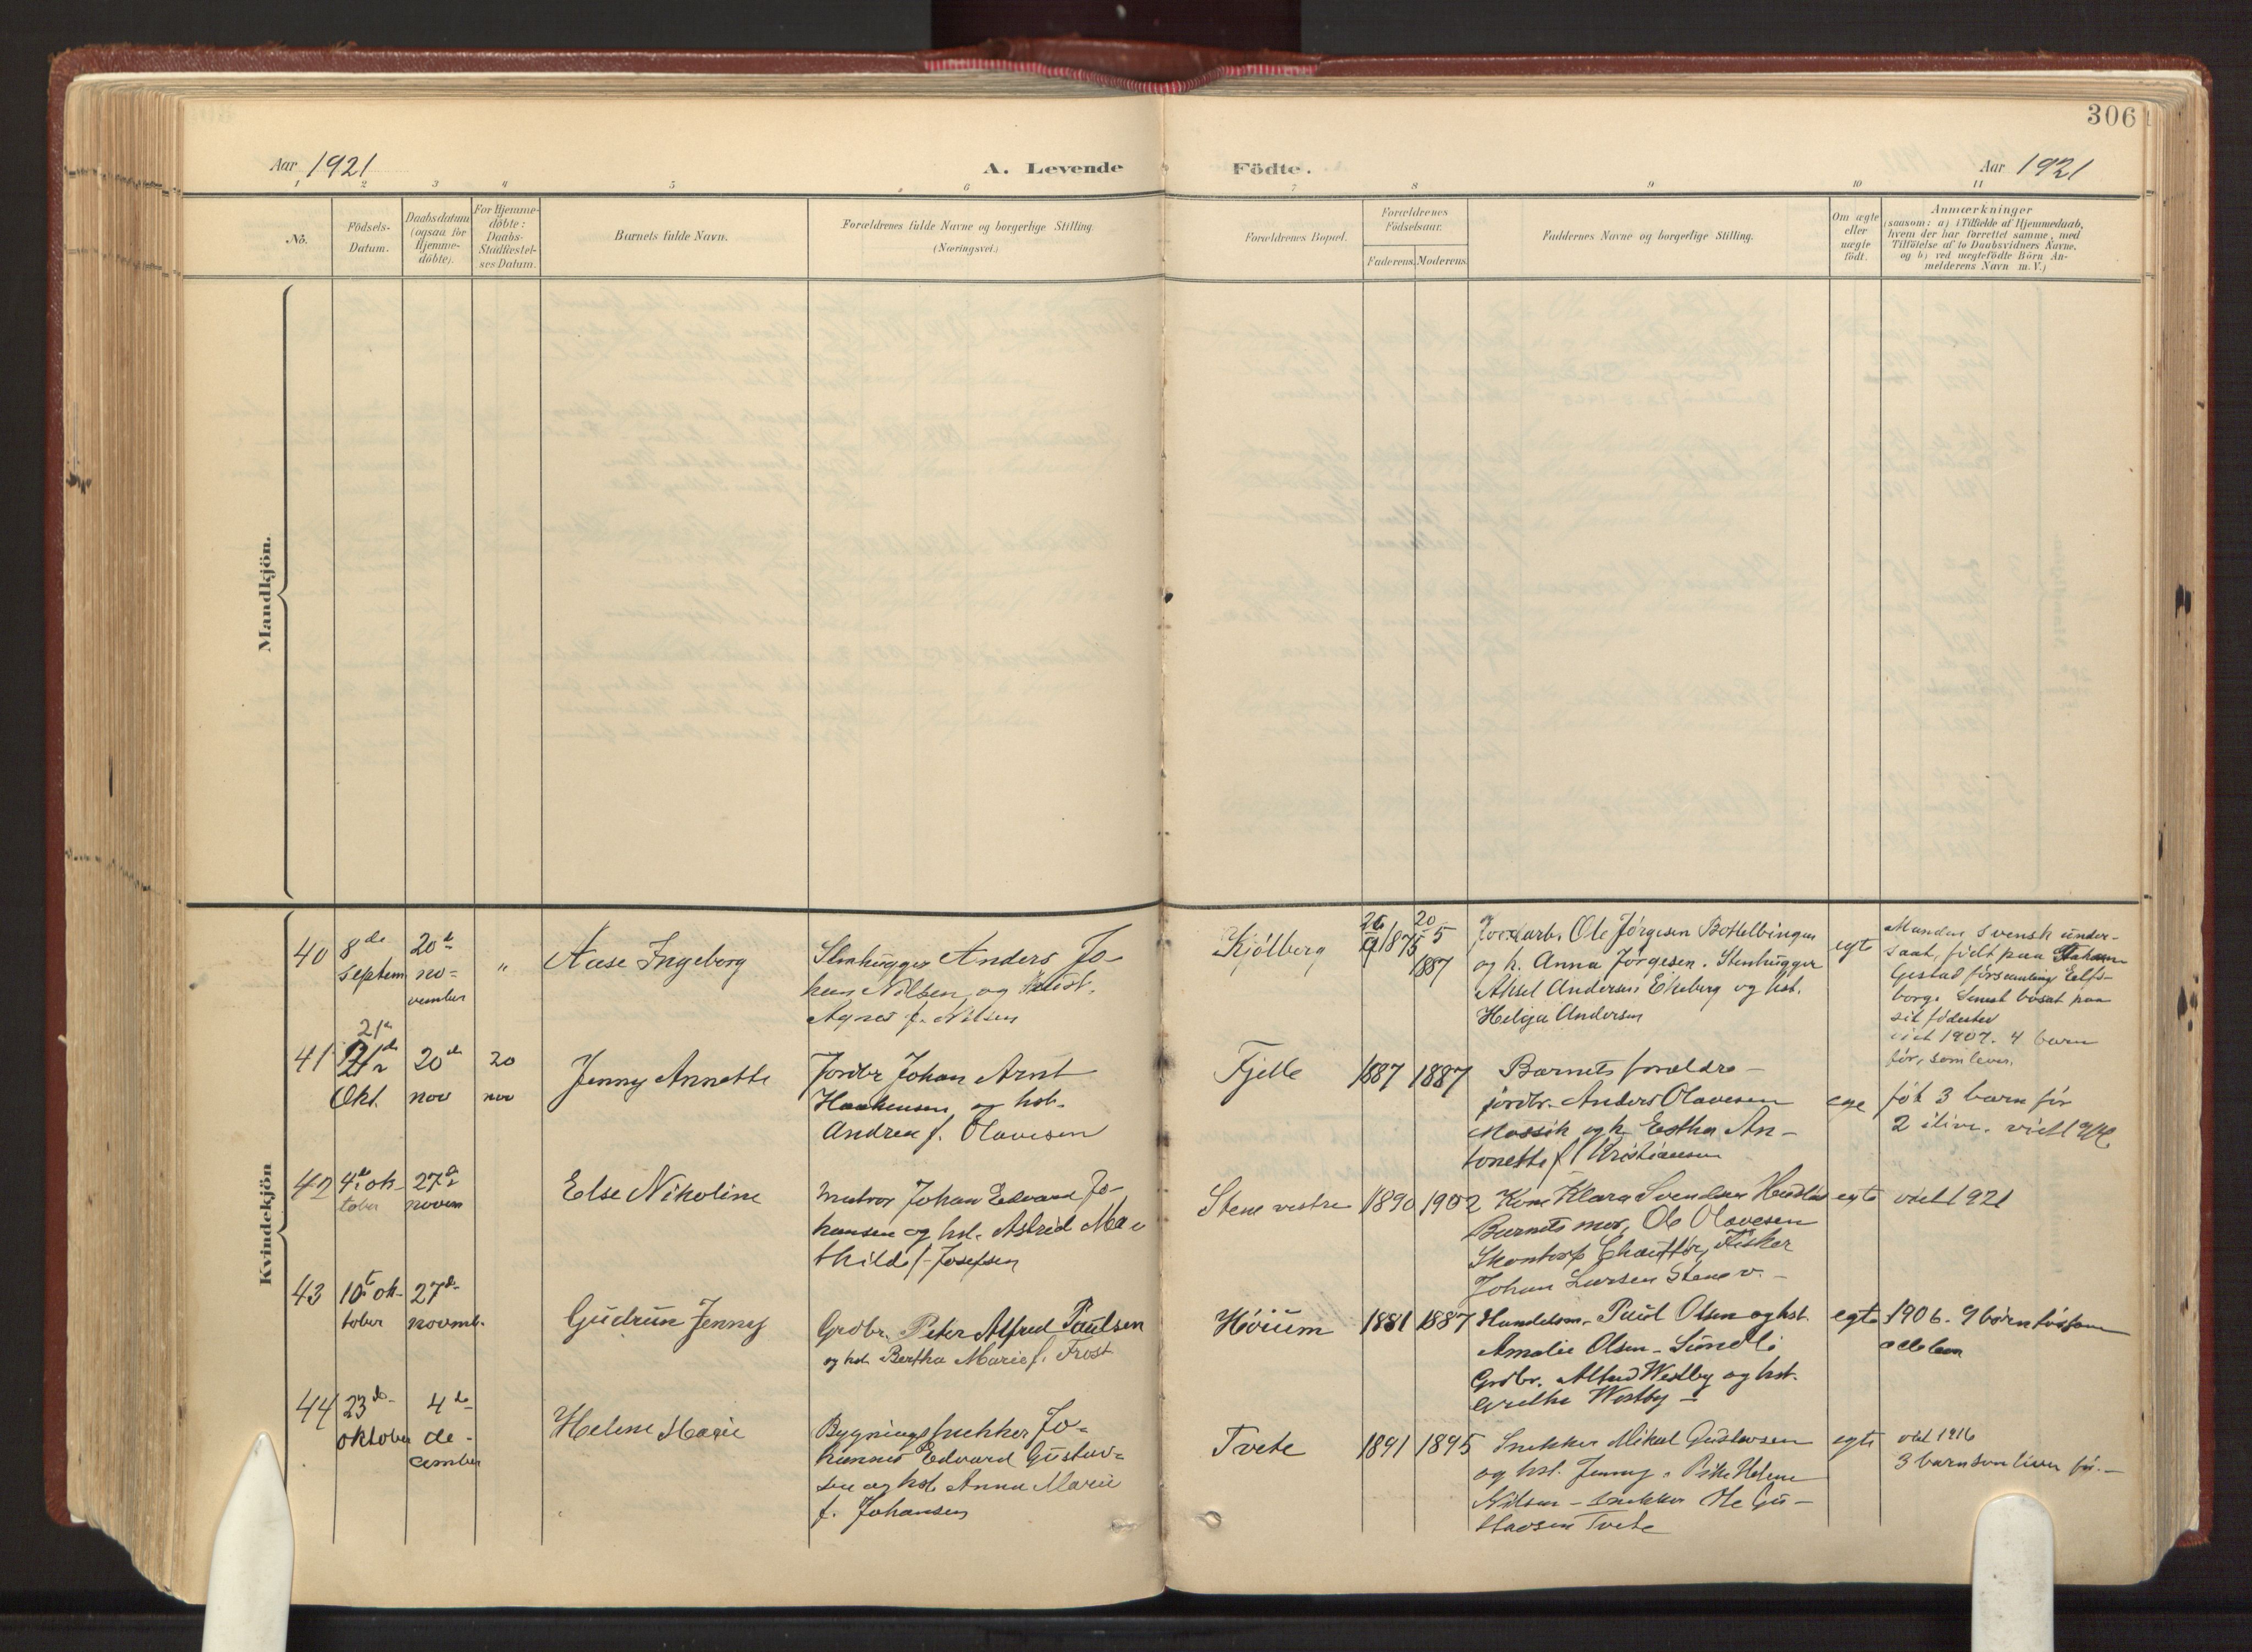 306
Aar 1921
A. Levende
Födte.
Aar 1921
1 2 3 4 5 6 7 8 9 10 11
No.
Födsels-
Datum.
Daabsdatum
(ogsaa for
Hjemme-
döbte).
For Hjemme-
döbte:
Daabs-
Stadfæstel-
ses Datum.
Barnets fulde Navn.
Forældrenes fulde Navne og borgerlige Stilling.
(Næringsvei.)
Forældrenes Bopæl.
Forældrenes
Födselsaar.
Faderens. Moderens.
Faddernes Navne og borgerlige Stilling.
Om ægte
eller
uægte
födt.
Anmærkninger
(saasom: a) i Tilfælde af Hjemmedaab,
hvem der har forrettet samme, med
Tilföielse af to Daabsvidners Navne,
og b) ved uægtefödte Börn An-
melderens Navn m. V.)
Mandkjön.
Kvindekjön
40
8de
septem
20de
no-
vember
"
Aase Ingeborg
Stenhugger Anders Jo-
han Nilsen og hust.
Agnes f. Nilsen
Kjölberg
26 1875
20 5
1887
Jordarb. Ole Jörgesen
og h. Anna Jörgesen. Stenhugger
Aksel Andersen Ekeberg og hst.
Helga Andersen
egte
Manden svensk under-
saat, födt paa
Gestad församling Elfs-
borg. Senest bosat paa
sit födested
viet 1907. 4 barn
för, som lever.
41
21de
Okt.
20de
nov
20
nov
Jenny Annette
Jordbr Johan Arnt
Haakensen og hst.
Andrea f. Olavesen
Fjelle
1887
1887
Barnets forældre -
jordbr. Anders Olavesen
og h. Esther An-
tonette f. Kristiansen
ege
föt 3 barn för
2 ilive. viet
42
4de ok-
tober
27de
novem
Else Nikoline
Matros Johan Edvard Jo-
hansen og hst. Astrid Ma-
thilde f. Josefsen
Stene vestre
1890
1902
Kone Klara Svendsen
Barnets mor, Ole Olavesen
Skontorp Chaufför, Fisker
Johan Larsen Stene v. -
egte
viet 1921
43
10de ok-
tober
27de
novemb.
Gudrun Jenny
Grdbr. Peter Alfred Paulsen
og hst. Bertha Marie f. Frost
Höium
1881
1887
Handelsm. Paul Olsen og hst.
Amalie Olsen - Sundli
Grdbr. Alfred Westby og hst.
Grethe Westby -
egte
1906. 9 börn för som
alle lever
44
23de
oktober
4de
de-
cember
Helene Marie
Bygningssnekker Jo-
hannes Edvard Gustav-
sen og hst. Anna Marie
f. Johansen
Tvete
1891
1895
Snekker Mikal Gustavsen
og hst. Jenny. Pike Helene
Nilsen - snekker Ole Gu-
stavsen Tvete
egte
viet 1916
3 barn som lever för. -